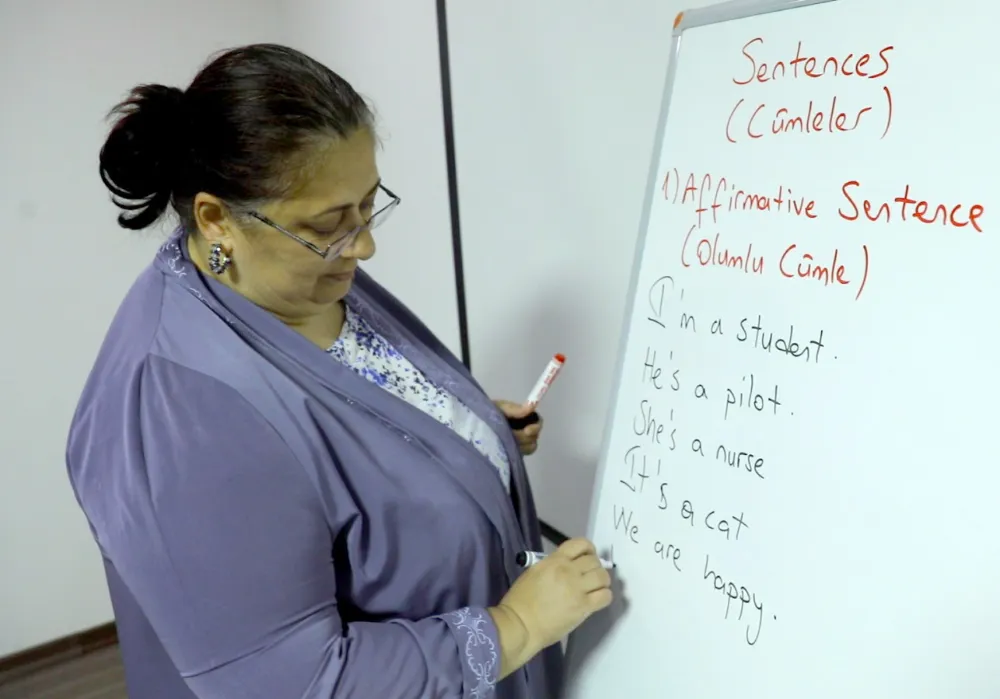 Sentences
(Cümleler)
1) Affirmative Sentence
(Olumlu Cümle)
I'm a student.
He's a pilot.
She's a nurse
It's a cat
We are happy.